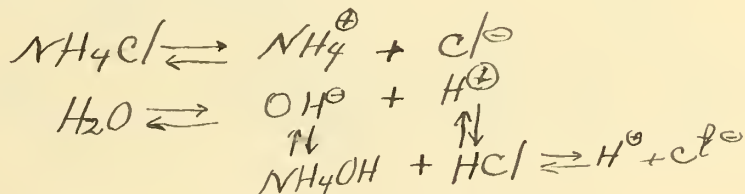 NH₄Cl ⇌ NH₄⊕ + Cl⊖
H₂O ⇌ OH⊖ + H⊕
⇅ ⇅
NH₄OH + HCl ⇌ H⊕ + Cl⊖